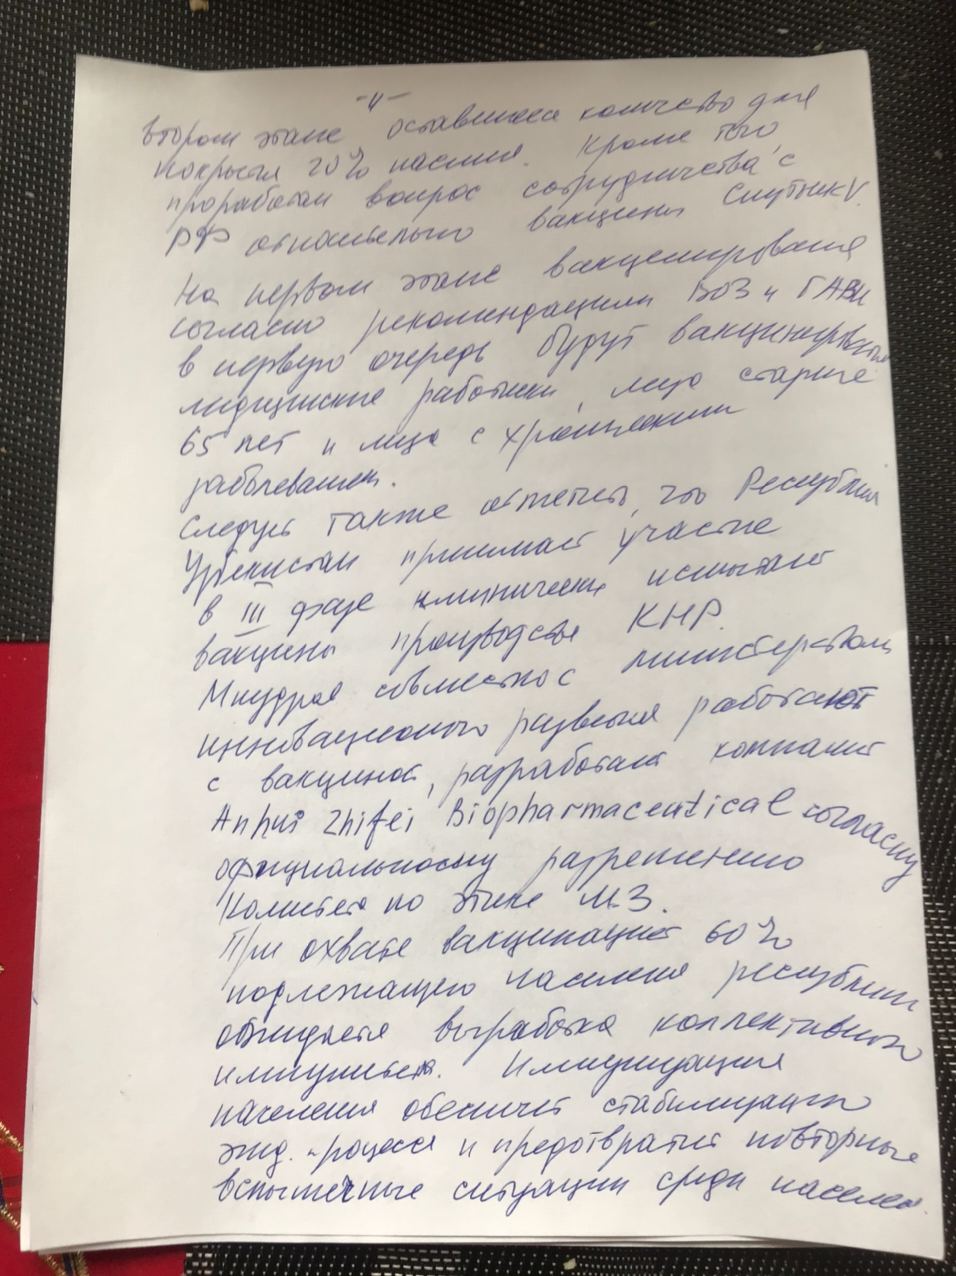 -4-
втором этапе оставшееся количество для
покрытия 20% населения. Кроме того
проработан вопрос сотрудничества с
РФ относительно вакцины Спутник V.
На первом этапе вакцинирования
согласно рекомендациям ВОЗ и ГАВИ
в первую очередь будут вакцинированы
медицинские работники, лица старше
65 лет и лица с хроническими
заболеваниями.
Следует также отметить, что Республика
Узбекистан принимает участие
в III фазе клинических испытаний
вакцины производства КНР.
Минздрав совместно с министерством
инновационного развития работают
с вакциной, разработанной компанией
Anhui Zhifei Biopharmaceutical согласно
официальному разрешению
Комитета по этике МЗ.
При охвате вакцинацией 60%
подлежащего населения республики
ожидается выработка коллективного
иммунитета. Иммунизация
населения обеспечит стабилизацию
эпид. процесса и предотвратит повторные
вспышечные ситуации среди населения.